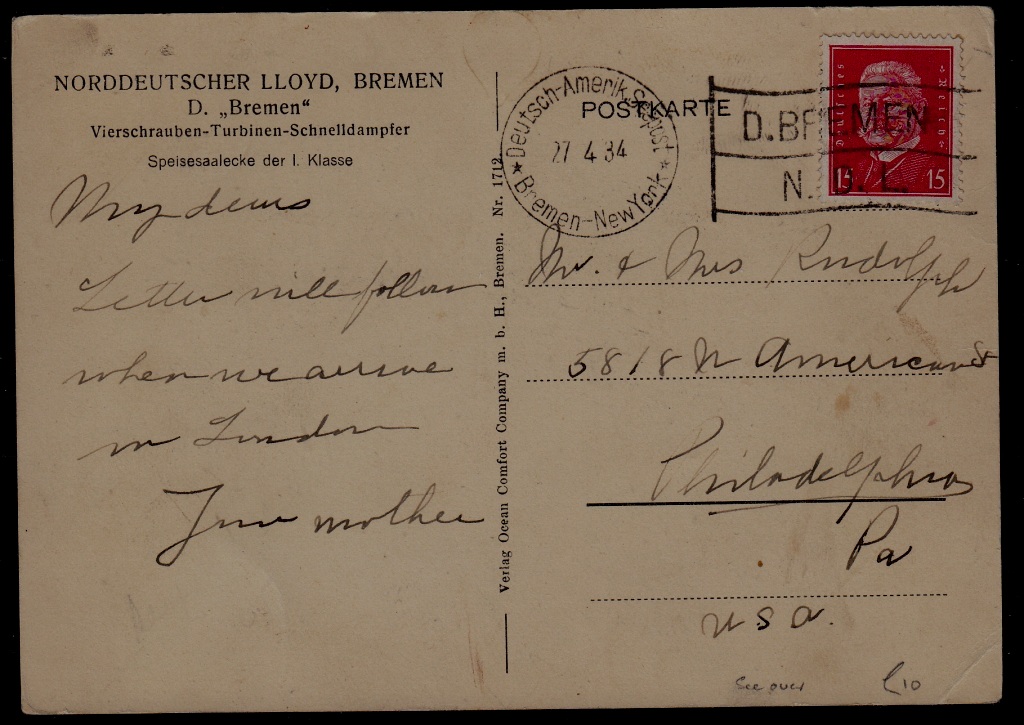 NORDDEUTSCHER LLOYD, BREMEN
D. „Bremen“
Vierschrauben-Turbinen-Schnelldampfer
Speisesaalecke der I. Klasse
My dears
Letter will follow
when we arrive
in London
Your mother
Verlag Ocean Comfort Company m. b. H., Bremen. Nr. 1712
POSTKARTE
Deutsch-Amerik. Seepost
27 4 34
★ Bremen-New York ★
D. BREMEN
N. D. L.
Deutsches Reich
15 15
Mr. & Mrs Rudolph
5818 N American St
Philadelphia
Pa
USA.
See over
£10